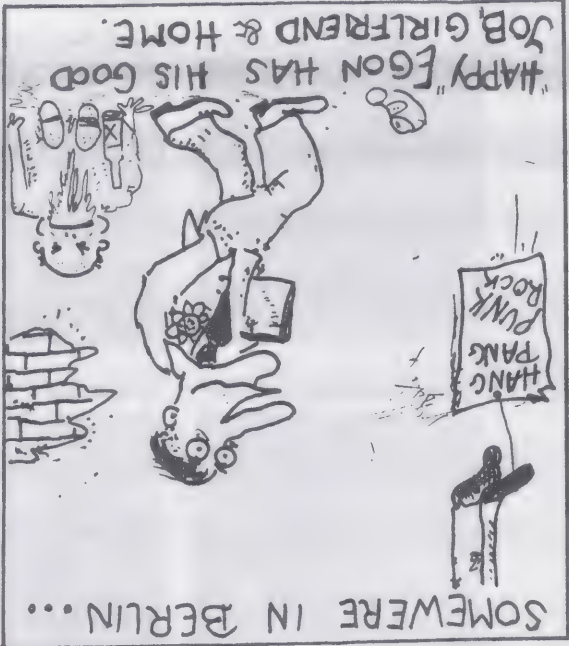 SOMEWERE IN BERLIN...
HANG
PANG
PUNK
ROCK
"HAPPY" EGON HAS HIS GOOD
JOB, GIRLFRIEND & HOME.